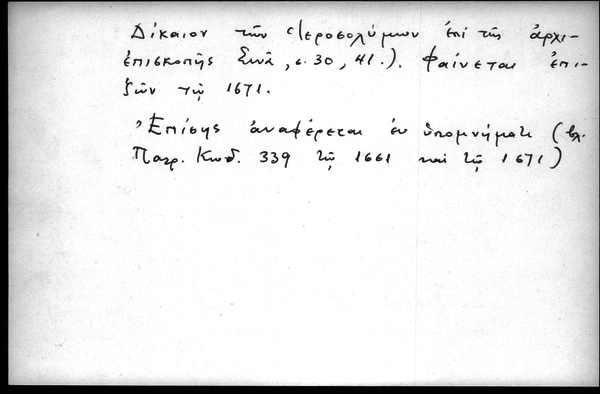 Δίκαιον τῶν Ἱεροσολύμων ἐπὶ τῆς ἀρχι-
ἐπισκοπῆς Σινᾶ, σ. 30, 41.). Φαίνεται ἐπι-
ζῶν τῷ 1671.
Ἐπίσης ἀναφέρεται ἐν ὑπομνήματι (βλ.
Πατρ. Κωδ. 339 τῷ 1661 καὶ τῷ 1671)